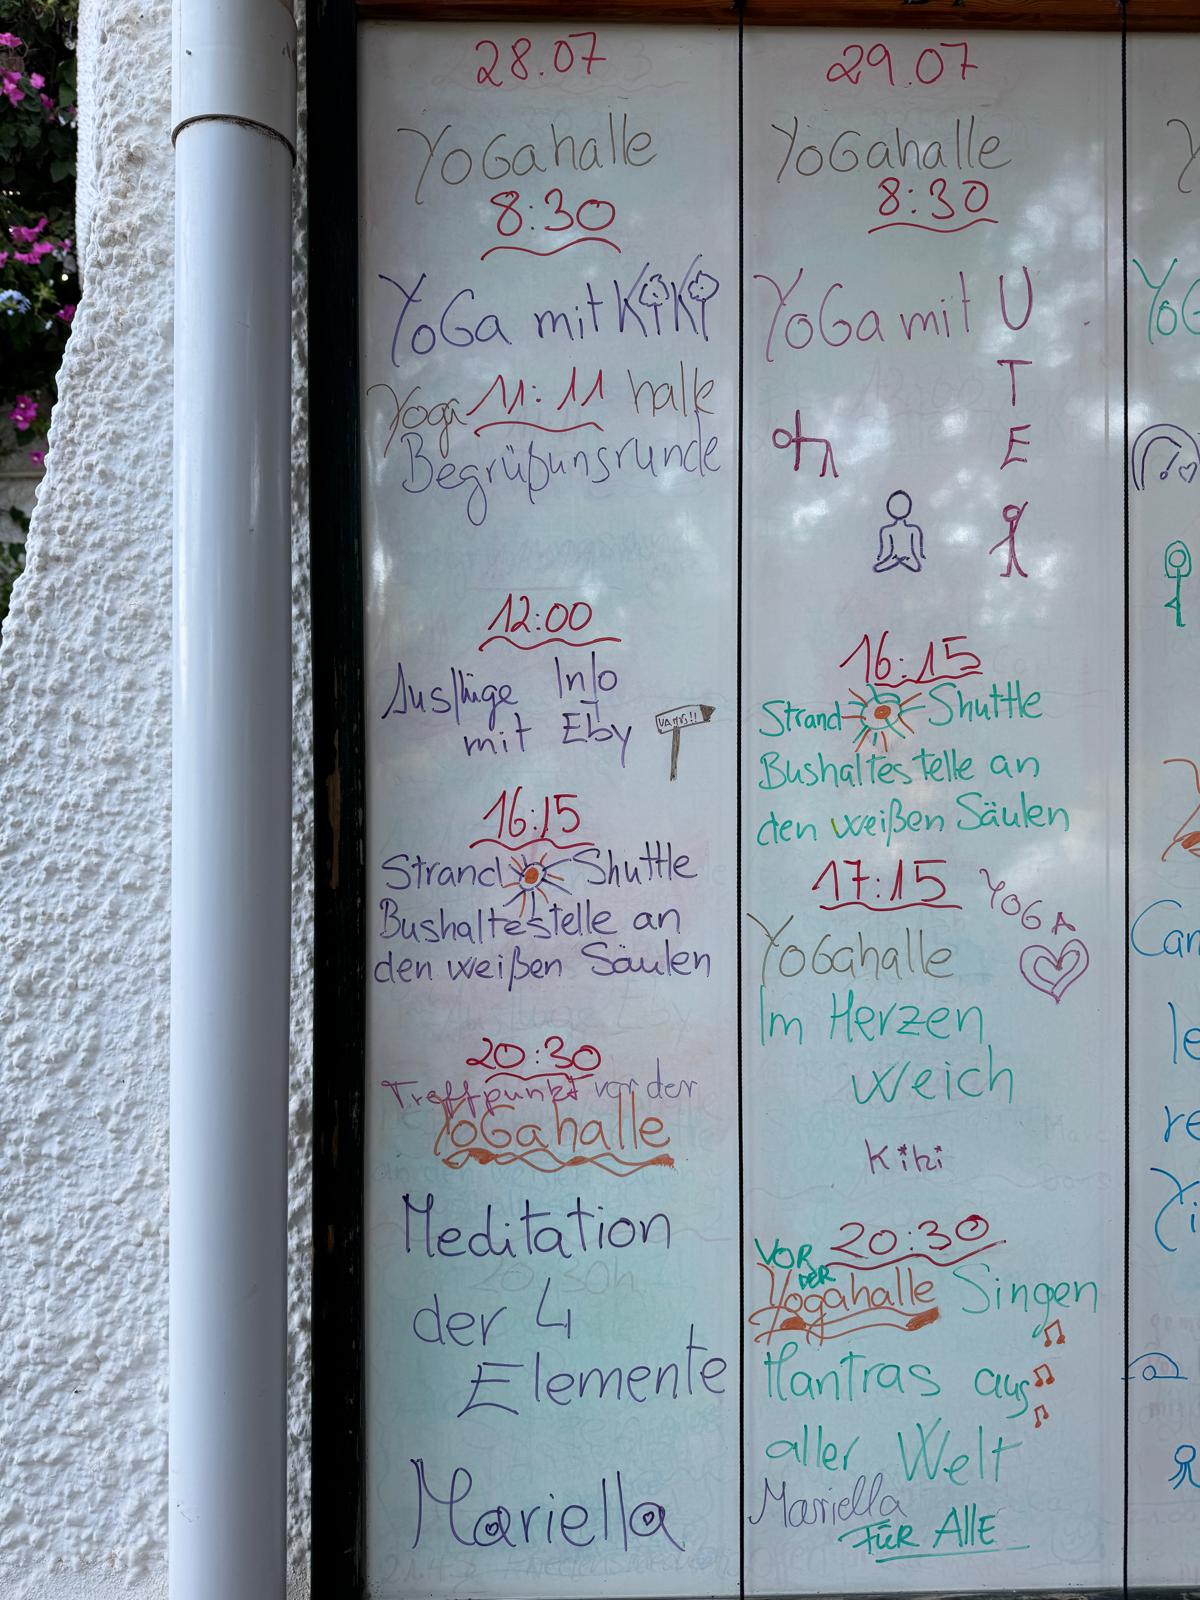 28.07
YoGahalle
8:30
YoGa mit KiKi
Yoga 11:11 halle
Begrüßunsrunde
12:00
Ausflüge Info
mit Eby
VAMOS!!
16:15
Strand Shuttle
Bushaltestelle an
den weißen Säulen
20:30
Treffpunkt vor der
YoGahalle
Meditation
der 4
Elemente
Mariella
29.07
YoGahalle
8:30
YoGa mit U
T
E
16:15
Strand Shuttle
Bushaltestelle an
den weißen Säulen
17:15
YOGA
YoGahalle
Im Herzen
weich
Kiki
20:30
VOR
DER
Yogahalle Singen
Mantras aus
aller Welt
Mariella
FÜR ALLE